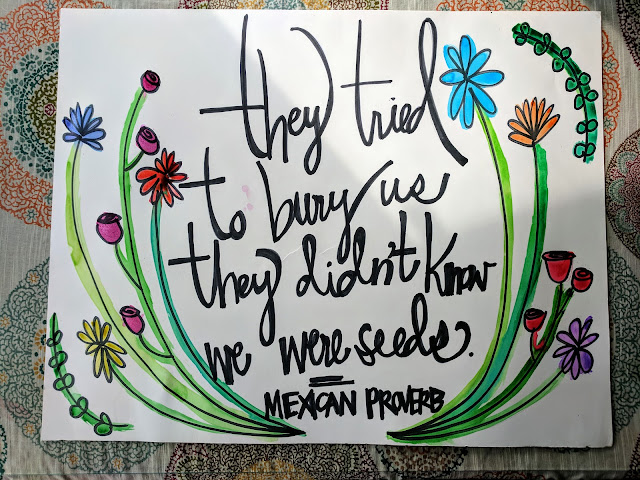 they tried
to bury us
they didn't know
we were seeds.
MEXICAN PROVERB